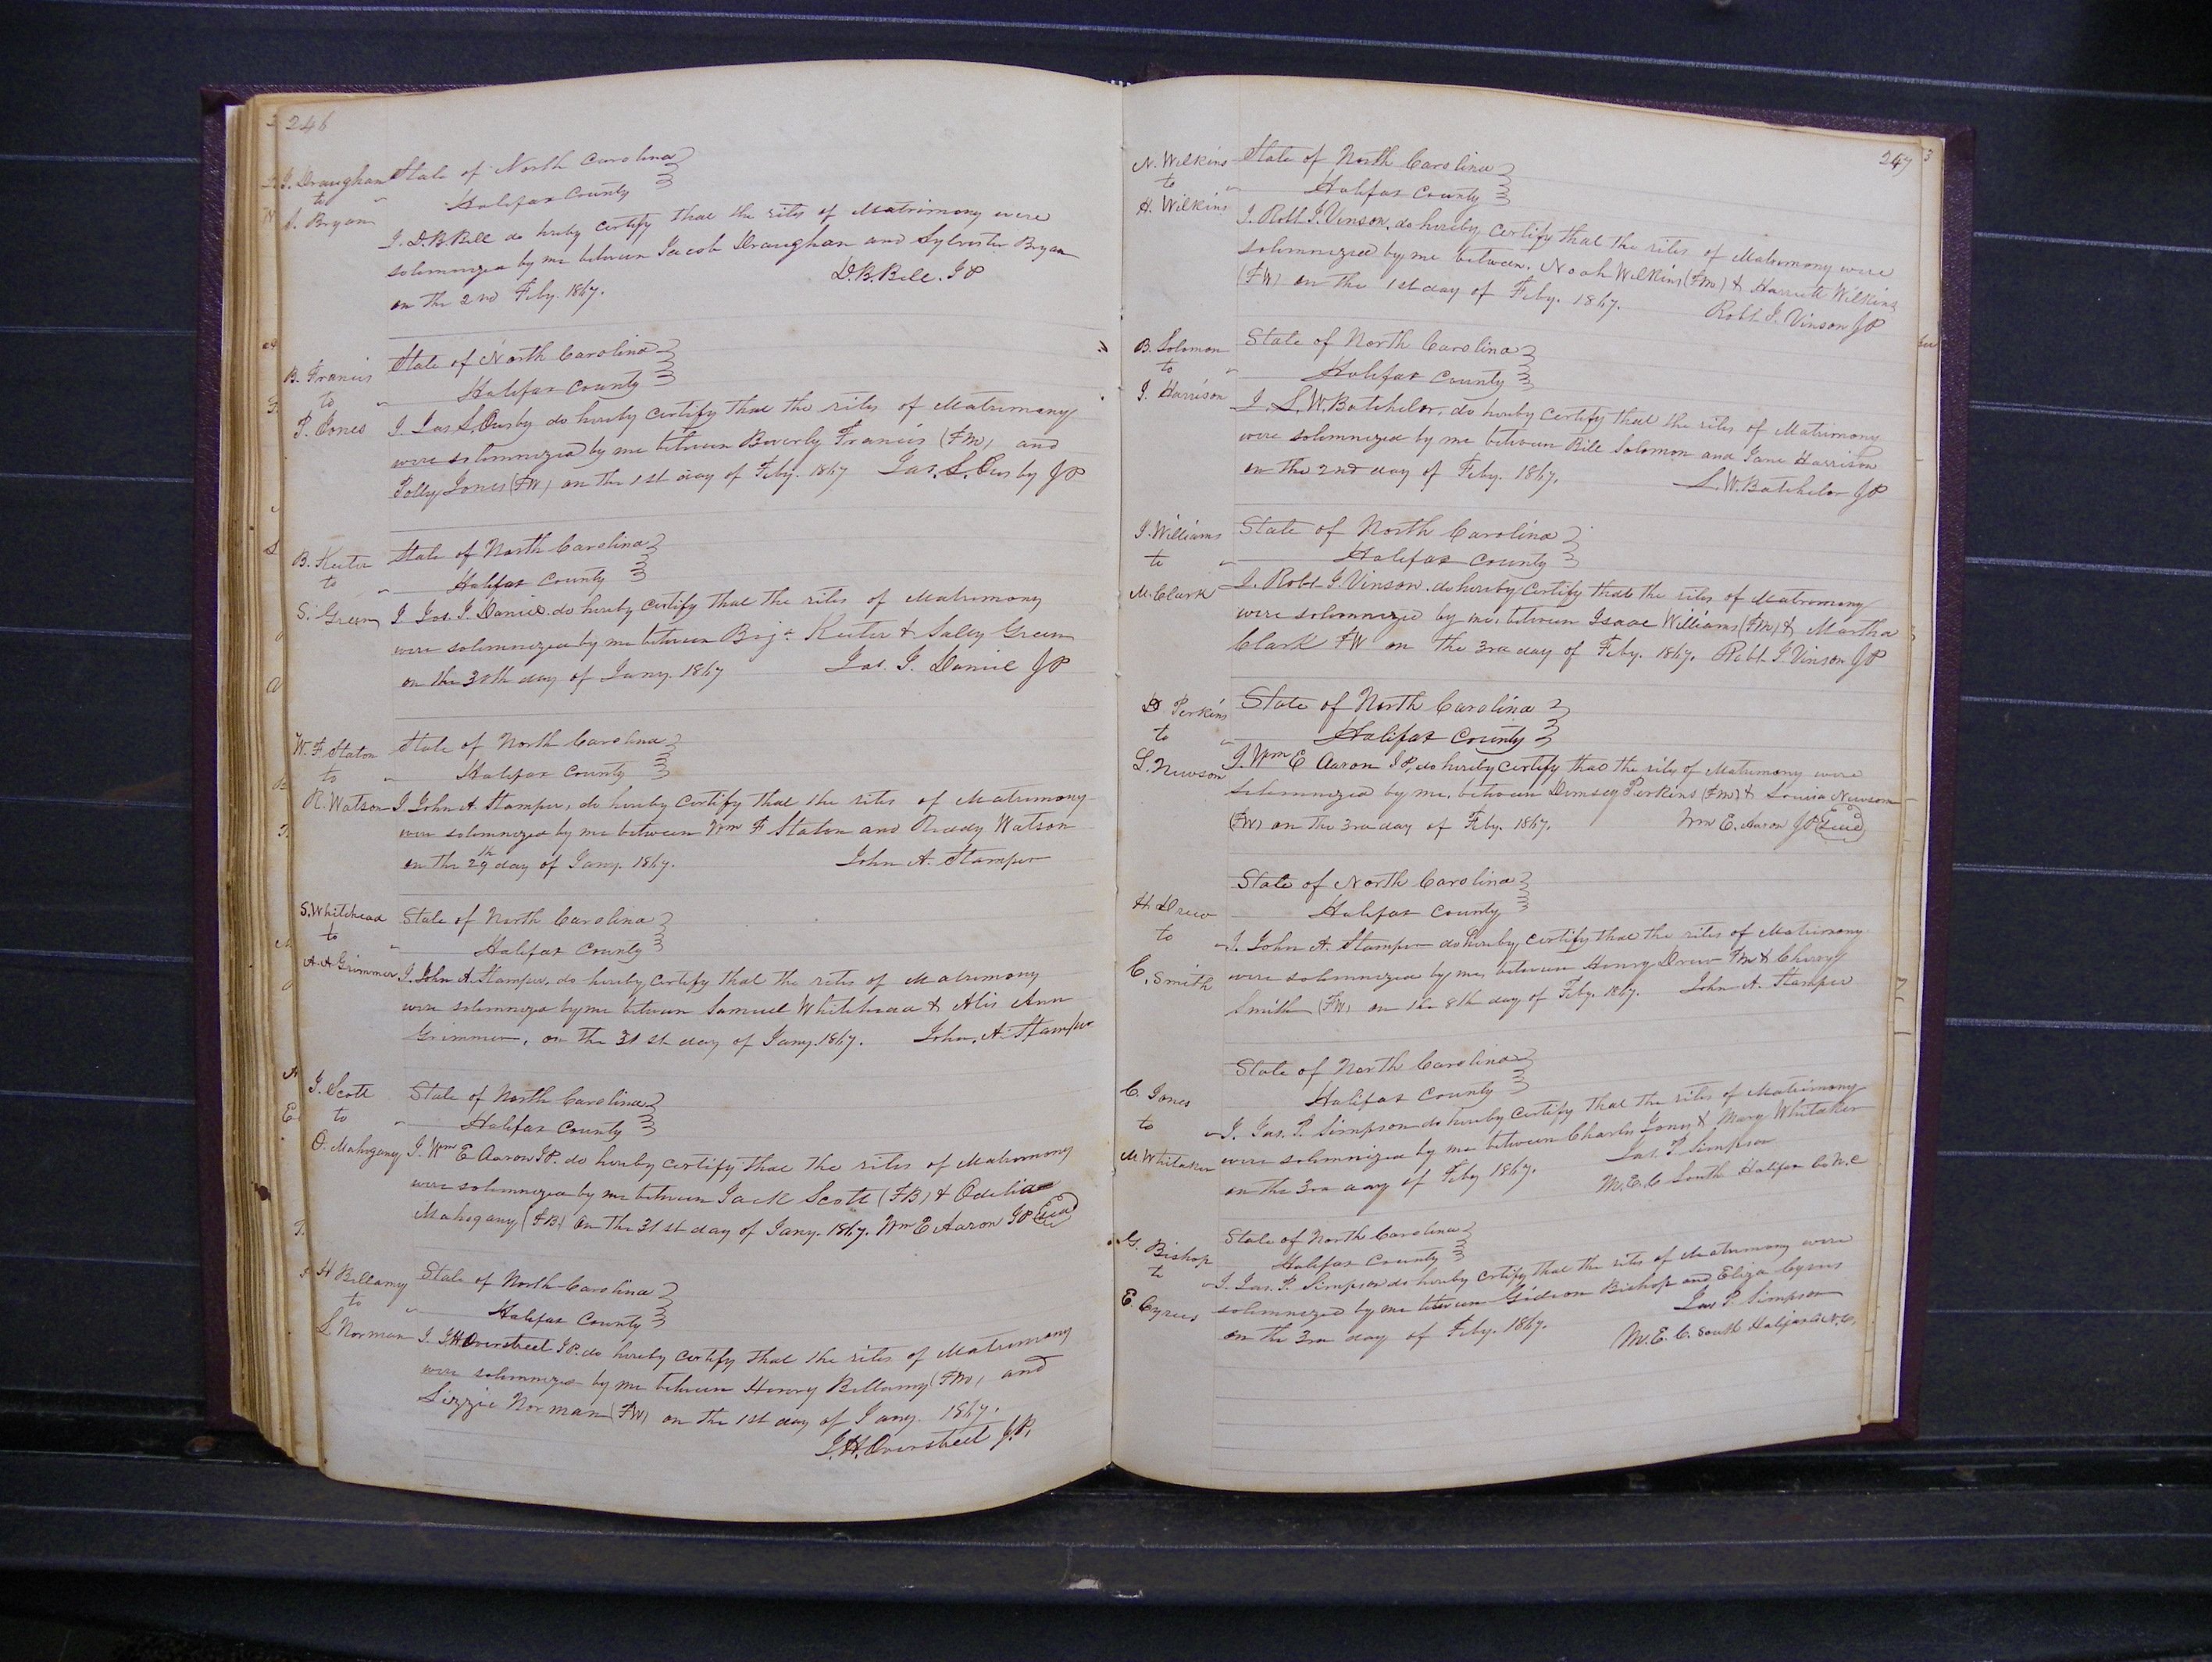 246
J. Draughan State of North Carolina
to " Halifax County
S. Bryan
I. D. B. Bell do hereby certify that the rites of Matrimony were
solemnized by me between Jacob Draughan and Sylvester Bryan
on the 2nd Feby. 1867. D. B. Bell. JP
B. Francis State of North Carolina
to " Halifax County
P. Jones I. Jas S. Ousby do hereby certify that the rites of Matrimony
were solemnized by me between Beverly Francis (FM) and
Polly Jones (FW) on the 1st day of Feby. 1867 Jas. S. Ousby JP
B. Keeter State of North Carolina
to " Halifax County
S. Green I Jas. J. Daniel do hereby certify that the rites of Matrimony
were solemnized by me between Keeter & Sally Green
on the 30th day of Jany. 1867 Jas. J. Daniel JP
W. F. Staton State of North Carolina
to " Halifax County
R. Watson I John A. Stamper, do hereby certify that the rites of Matrimony
were solemnized by me between Wm F Staton and Watson
on the 29th day of Jany. 1867. John A. Stamper
S. Whitehead State of North Carolina
to " Halifax County
A. A Grimmer I. John A. Stamper, do hereby certify that the rites of Matrimony
were solemnized by me between Samuel Whitehead & Alis Ann
Grimmer, on the 31st day of Jany. 1867. John. A. Stamper
J. Scott State of North Carolina
to " Halifax County
O. Mahogany I. Wm E Aaron JP. do hereby certify that the rites of Matrimony
were solemnized by me between Jack Scott (FB) & Odelia
Mahogany (FB) on the 31st day of Jany. 1867. Wm E Aaron JP (Seal)
H Bellamy State of North Carolina
to " Halifax County
L Norman I. J. H Overstreet JP. do hereby certify that the rites of Matrimony
were solemnized by me between Henry Bellamy (FM) and
Lizzie Norman (FW) on the 1st day of Jany. 1867.
J. H. Overstreet J.P.
247
N. Wilkins State of North Carolina
to " Halifax County
H. Wilkins I. Robt J. Vinson, do hereby certify that the rites of Matrimony were
solemnized by me between. Noah Wilkins (FM) & Harriett Wilkins
(FW) on the 1st day of Feby. 1867. Robt J. Vinson JP
B. Solomon State of North Carolina
to " Halifax County
J. Harrison I. L. W. Batchelor, do hereby certify that the rites of Matrimony
were solemnized by me between Bill Solomon and Jane Harrison
on the 2nd day of Feby. 1867. L. W. Batchelor JP
I. Williams State of North Carolina
to " Halifax County
M. Clark I. Robt J. Vinson. do hereby certify that the rites of Matrimony
were solemnized by me, between Isaac Williams (FM) & Martha
Clark FW on the 3rd day of Feby. 1867. Robt J. Vinson JP
D Perkins State of North Carolina
to " Halifax County
L. Newsom I. Wm E Aaron JP, do hereby certify that the rites of Matrimony were
solemnized by me, between Demsey Perkins (FM) & Louisa Newsom
(FW) on the 3rd day of Feby. 1867. Wm E. Aaron JP (Seal)
State of North Carolina
H. Drew Halifax County
to " I. John A. Stamper do hereby certify that the rites of Matrimony
C. Smith were solemnized by me, between Henry Drew FM &
Smith (FW) on the 8th day of Feby. 1867. John A. Stamper
State of North Carolina
C. Jones Halifax County
to " I. Jas. P. Simpson do hereby certify that the rites of Matrimony
M. Whitaker were solemnized by me between Charles Jones & Mary Whitaker
on the 3rd day of Feby 1867. Jas. P. Simpson
M. E. C South Halifax Co N. C
G. Bishop State of North Carolina
to Halifax County
" I. Jas. P. Simpson do hereby certify that the rites of Matrimony were
E. Cyrus solemnized by me between Gideon Bishop and Eliza Cyrus
on the 3rd day of Feby. 1867. Jas P. Simpson
M. E. C. South Halifax Co N. C.